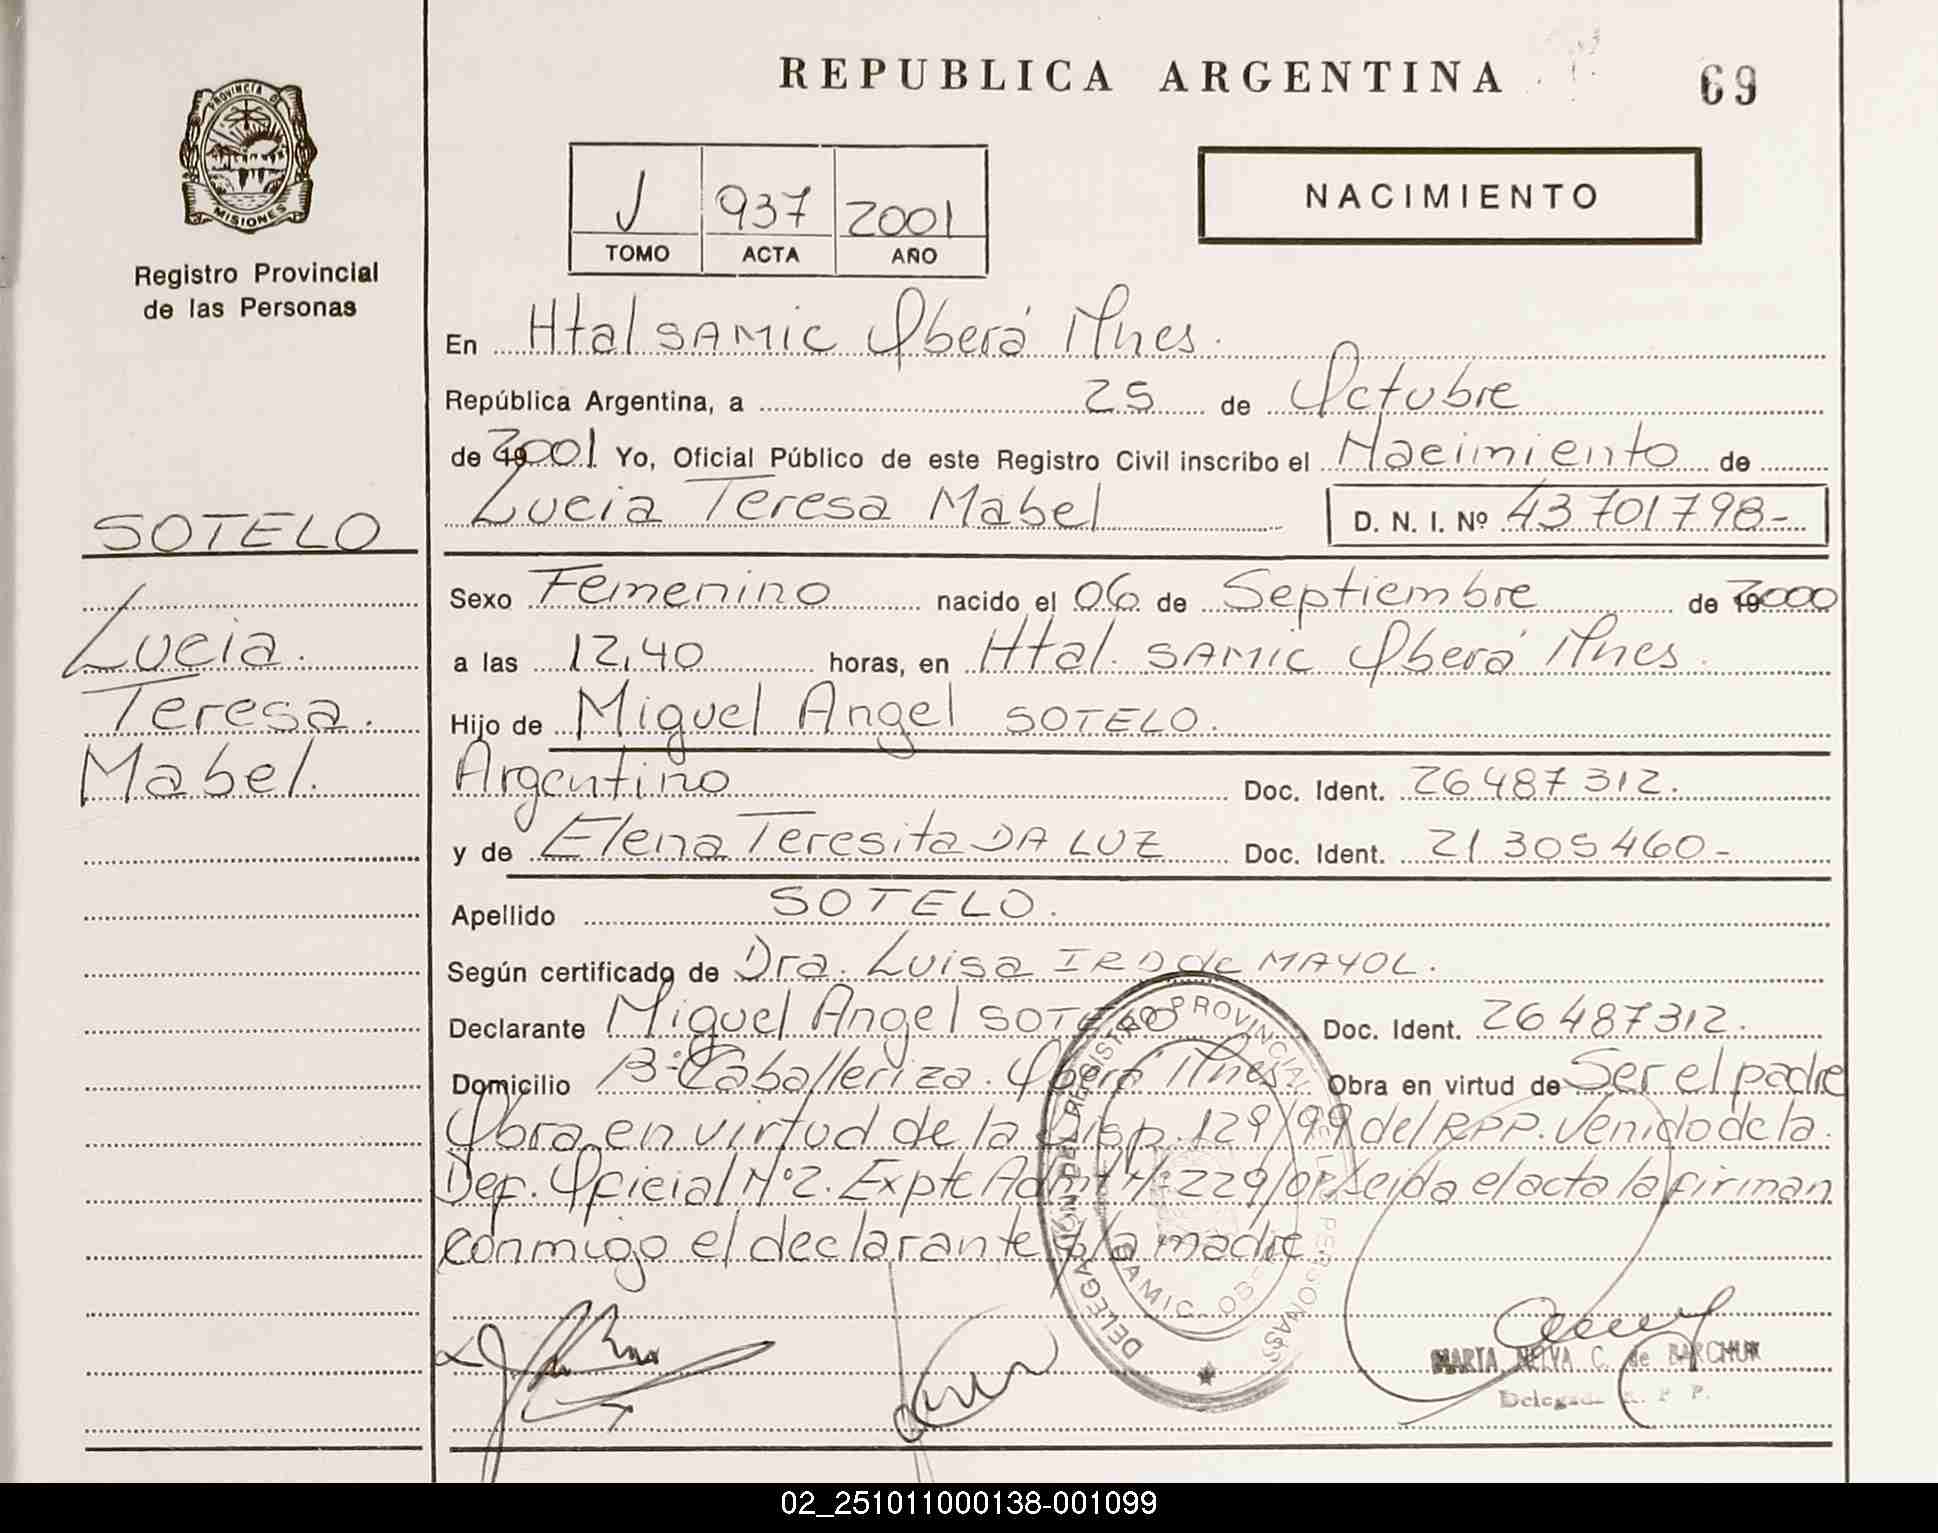 REPUBLICA ARGENTINA
69
PROVINCIA DE
MISIONES
Registro Provincial
de las Personas
J 937 2001
TOMO ACTA AÑO
NACIMIENTO
En Htal SAMIC Oberá Mnes.
República Argentina, a 25 de Octubre
de 2001 Yo, Oficial Público de este Registro Civil inscribo el Nacimiento de
Lucia Teresa Mabel D. N. I. Nº 43 701 798-
SOTELO
Lucia.
Teresa.
Mabel.
Sexo Femenino nacido el 06 de Septiembre de 2000
a las 12,40 horas, en Htal. SAMIC Oberá Mnes.
Hijo de Miguel Angel SOTELO.
Argentino Doc. Ident. 26 487 312.
y de Elena Teresita DA LUZ Doc. Ident. 21 305 460-
Apellido SOTELO.
Según certificado de Dra. Luisa de MAYOL.
Declarante Miguel Angel SOTELO Doc. Ident. 26 487 312.
Domicilio Bº Caballeriza. Oberá Mnes Obra en virtud de Ser el padre
Obra en virtud de la Disp. 129/99 del RPP. Venido de la
Def. Oficial Nº 2. Expte Admt Nº 229/01. Leida el acta la firman
conmigo el declarante y la madre
DELEGACIÓN DEL REGISTRO PROVINCIAL DE LAS PERSONAS
SAMIC
MARTA NELVA C. de BARCHUK
Delegada R. P. P.
02_251011000138-001099